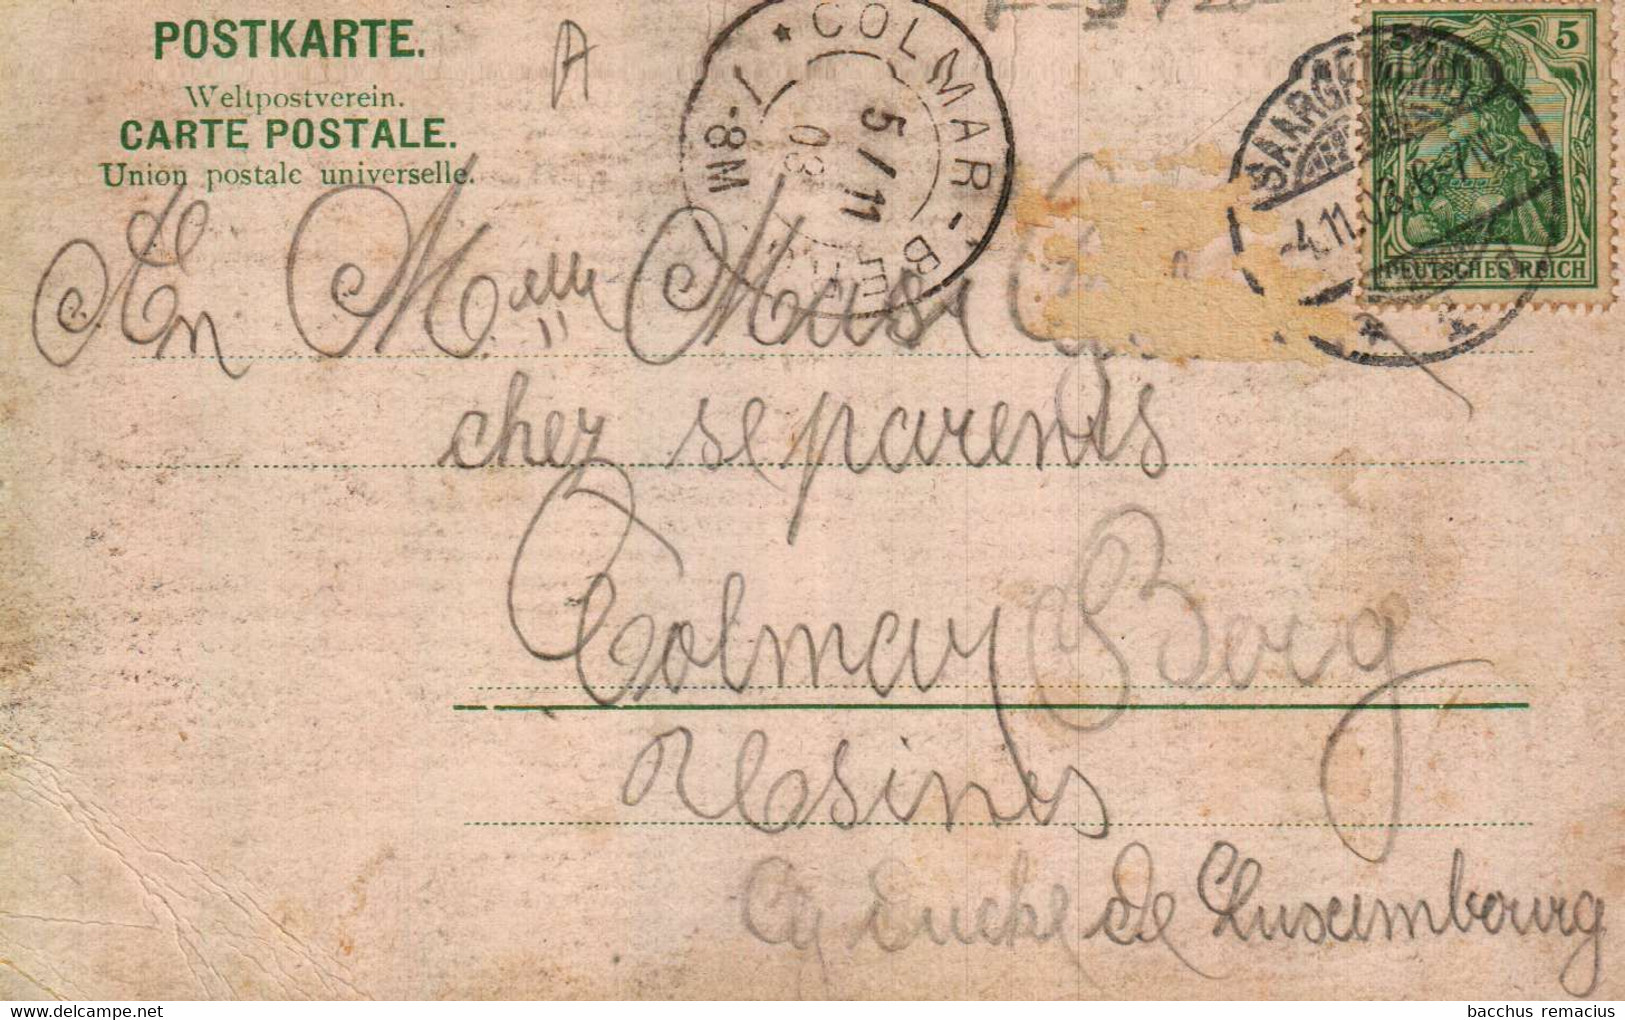 POSTKARTE.
Weltpostverein.
CARTE POSTALE.
Union postale universelle.
A
COLMAR-BERG
5/11
03
7-8M
SAARGEMÜND
-4.11.03. 6-7N.
5 5
DEUTSCHES REICH
An Melle
chez se parents
Colmar Berg
Usines
Gr duche de Luxembourg
bacchus remacius